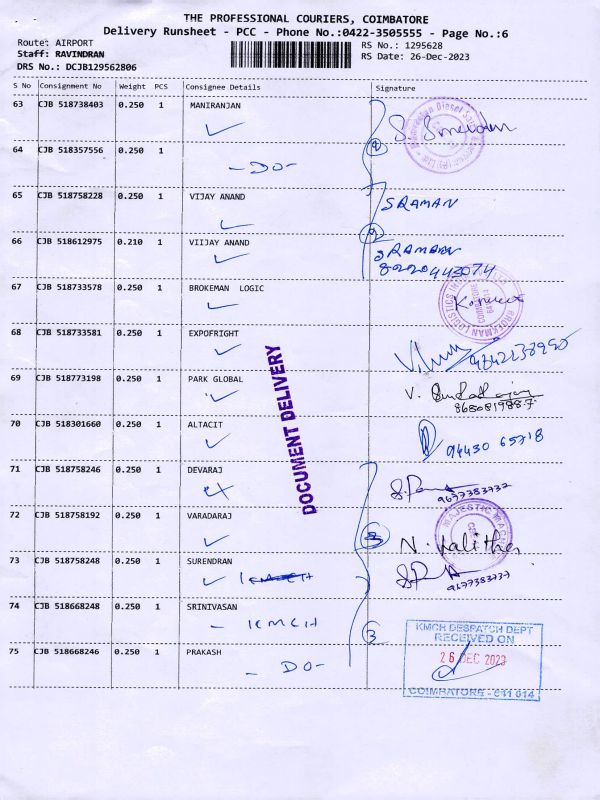 THE PROFESSIONAL COURIERS, COIMBATORE
Delivery Runsheet - PCC - Phone No.:0422-3505555 - Page No.:6
Route: AIRPORT
RS No.: 1295628
Staff: RAVINDRAN
RS Date: 26-Dec-2023
DRS No.: DCJB129562806
S No Consignment No Weight PCS Consignee Details Signature
63 CJB 518738403 0.250 1 MANIRANJAN
64 CJB 518357556 0.250 1
-DO-
65 CJB 518758228 0.250 1 VIJAY ANAND
SRAMAN
66 CJB 518612975 0.210 1 VIIJAY ANAND
8220443074
67 CJB 518733578 0.250 1 BROKEMAN LOGIC
68 CJB 518733581 0.250 1 EXPOFRIGHT
69 CJB 518773198 0.250 1 PARK GLOBAL
V.
8680819887
70 CJB 518301660 0.250 1 ALTACIT
94430 65718
71 CJB 518758246 0.250 1 DEVARAJ
9677383737
72 CJB 518758192 0.250 1 VARADARAJ
MAJESTIC
N. Lalitha
73 CJB 518758248 0.250 1 SURENDRAN
9677383737
74 CJB 518668248 0.250 1 SRINIVASAN
- KMCH
3
75 CJB 518668246 0.250 1 PRAKASH
- DO-
DOCUMENT DELIVERY
KMCH DESPATCH DEPT
RECEIVED ON
26 DEC 2023
COIMBATORE - 641 014